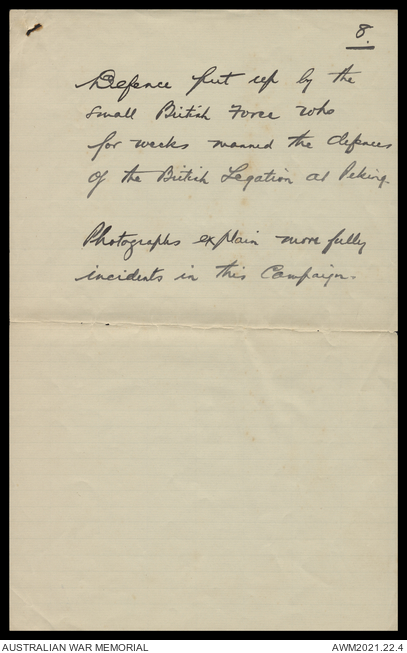 8.
Defence put up by the
small British Force who
for weeks manned the defences
of the British Legation at Peking.
Photographs explain more fully
incidents in this Campaign.
AUSTRALIAN WAR MEMORIAL
AWM2021.22.4